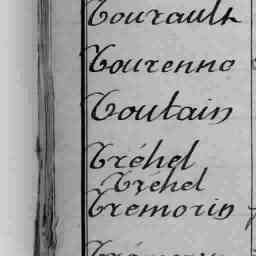 Tourault
Tourenno
Toutain
Tréhel
Tréhel
Tremorin